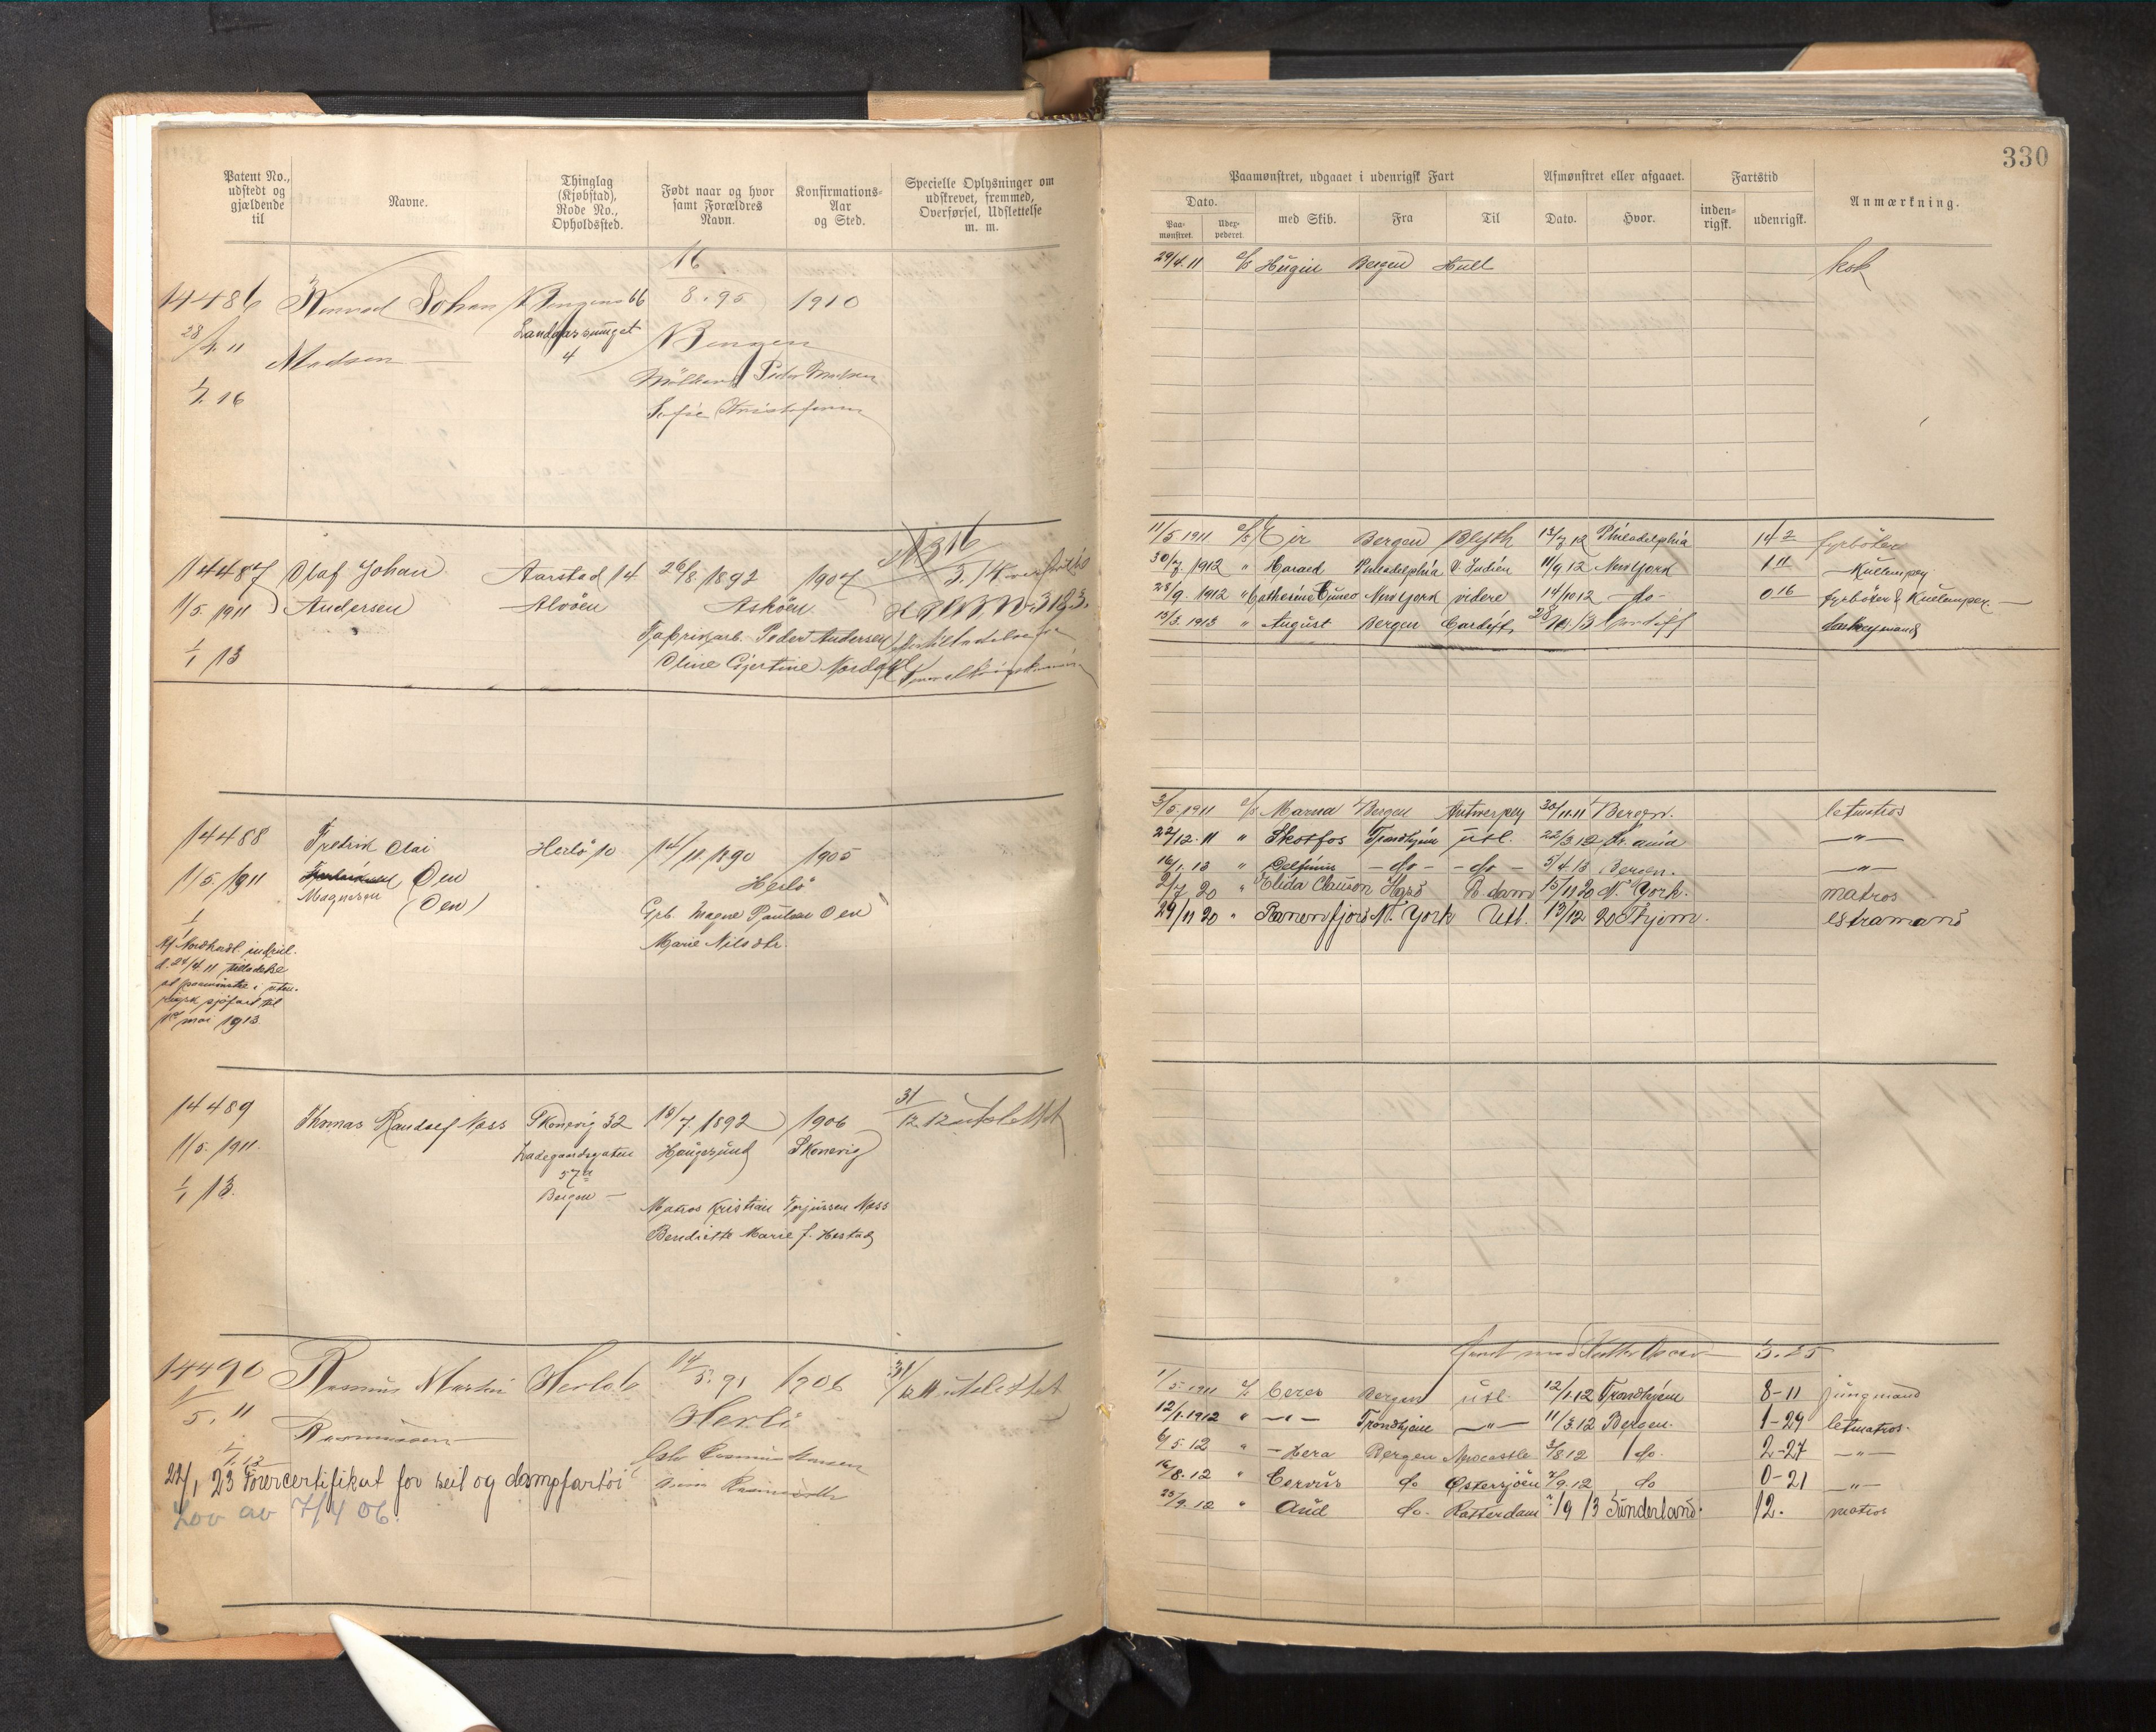 330
Patent No., udstedt og gjældende til
Navne.
Thinglag (Kjøbstad), Rode No., Opholdssted.
Født naar og hvor samt Forældres Navn.
Konfirmations-Aar og Sted.
Specielle Oplysninger om udskrevet, fremmed, Overførsel, Udslettelse m. m.
Paamønstret, udgaaet i udenrigsk Fart
Afmønstret eller afgaaet.
Fartstid
Anmærkning.
Dato.
Paa-mønstret.
Udex-pederet.
med Skib.
Fra
Til
Dato.
Hvor.
inden-rigsk.
udenrigsk.
16
14486 Konrad Johan Bergens 66 8.95 1910
28/4 11 Madsen Landaassvinget 4 Bergen
Peder Madsen
1/1 16
29/4.11 Hugin Bergen Hull kok
14487 Olaf Johan Aarstad 14 26/8 1892 1907
1/5 1911 Andersen Alvöen Asköen
Fabrikarb. Peder Andersen
1/1 13 Oline Gjertine
11/5 1911 Eir Bergen Blyth 13/7 12 Philadelphia 14 2 fyrböter
30/7 1912 " Harald Philadelphia V. Indien 11/9 12 New York 1 11 Kullemper
23/9 1912 " Catherine Cuneo New York videre 14/10 12 - do - 0 16 fyrböter & Kullemper
13/3 1913 " August Bergen Cardiff 28/4 13 Cardiff donkeymand
14488 Fredrik Olai Herlö 10 14/11 1890 1905
1/5 1911 Öen Herlö
Magnesen (Öen) Grb. Magne Paulsen Öen
Marie Nilsdtr.
1/1
Af Nordhordl. indrul.
d. 24/4 11 tilladelse
at paamönstre i uten-
rigsk sjöfart til
1ste mai 1913.
3/5 1911 Marna Bergen Antwerpen 30/11.11 Bergen. letmatros
22/12.11 " Skotfos Trondhjem utl. 22/3.12 Kr.ania — " —
16/1 13 " Delfinus - do - - do - 5/4.13 Bergen. — " —
2/7 20 " Elida Clauson R.dam 15/11 20 N. York. matros
29/11 20 " Ranenfjord N. York Utl. 13/12 20 Thjem. extramand
14489 Thomas Randulf Næss Skonevig 32 18/7 1892 1906 31/12 12 utslettet
1/5 1911. Ladegaardsgaten Haugesund Skonevig
57 a
1/1 13. Bergen —
Matros Kristian Torjussen Næss
Bendiette Marie f. Hestad
14490 Rasmus Martin Herlö 6 14/5.91 1906 31/12 11 utslettet
1/5.11 Rasmussen Herlö
1/1.13
22/1 23 Förercertifikat for seil og dampfartöi
Lov av 7/4 06.
1/5 1911 Ceres Bergen utl. 12/1.12 Trondhjem 8-11 jungmand
12/1.1912 " — " — Trondhjem — " — 11/3.12 Bergen. 1-29 letmatros.
6/5 12 " - Hera Bergen Newcastle 2/8 12 do. 2-27 — " —
16/8.12 " Cervus do Östersjöen 7/9.12 do 0-21 — " —
25/9.12 " Aud do. Rotterdam /9 13 Sunderland. 12. matros